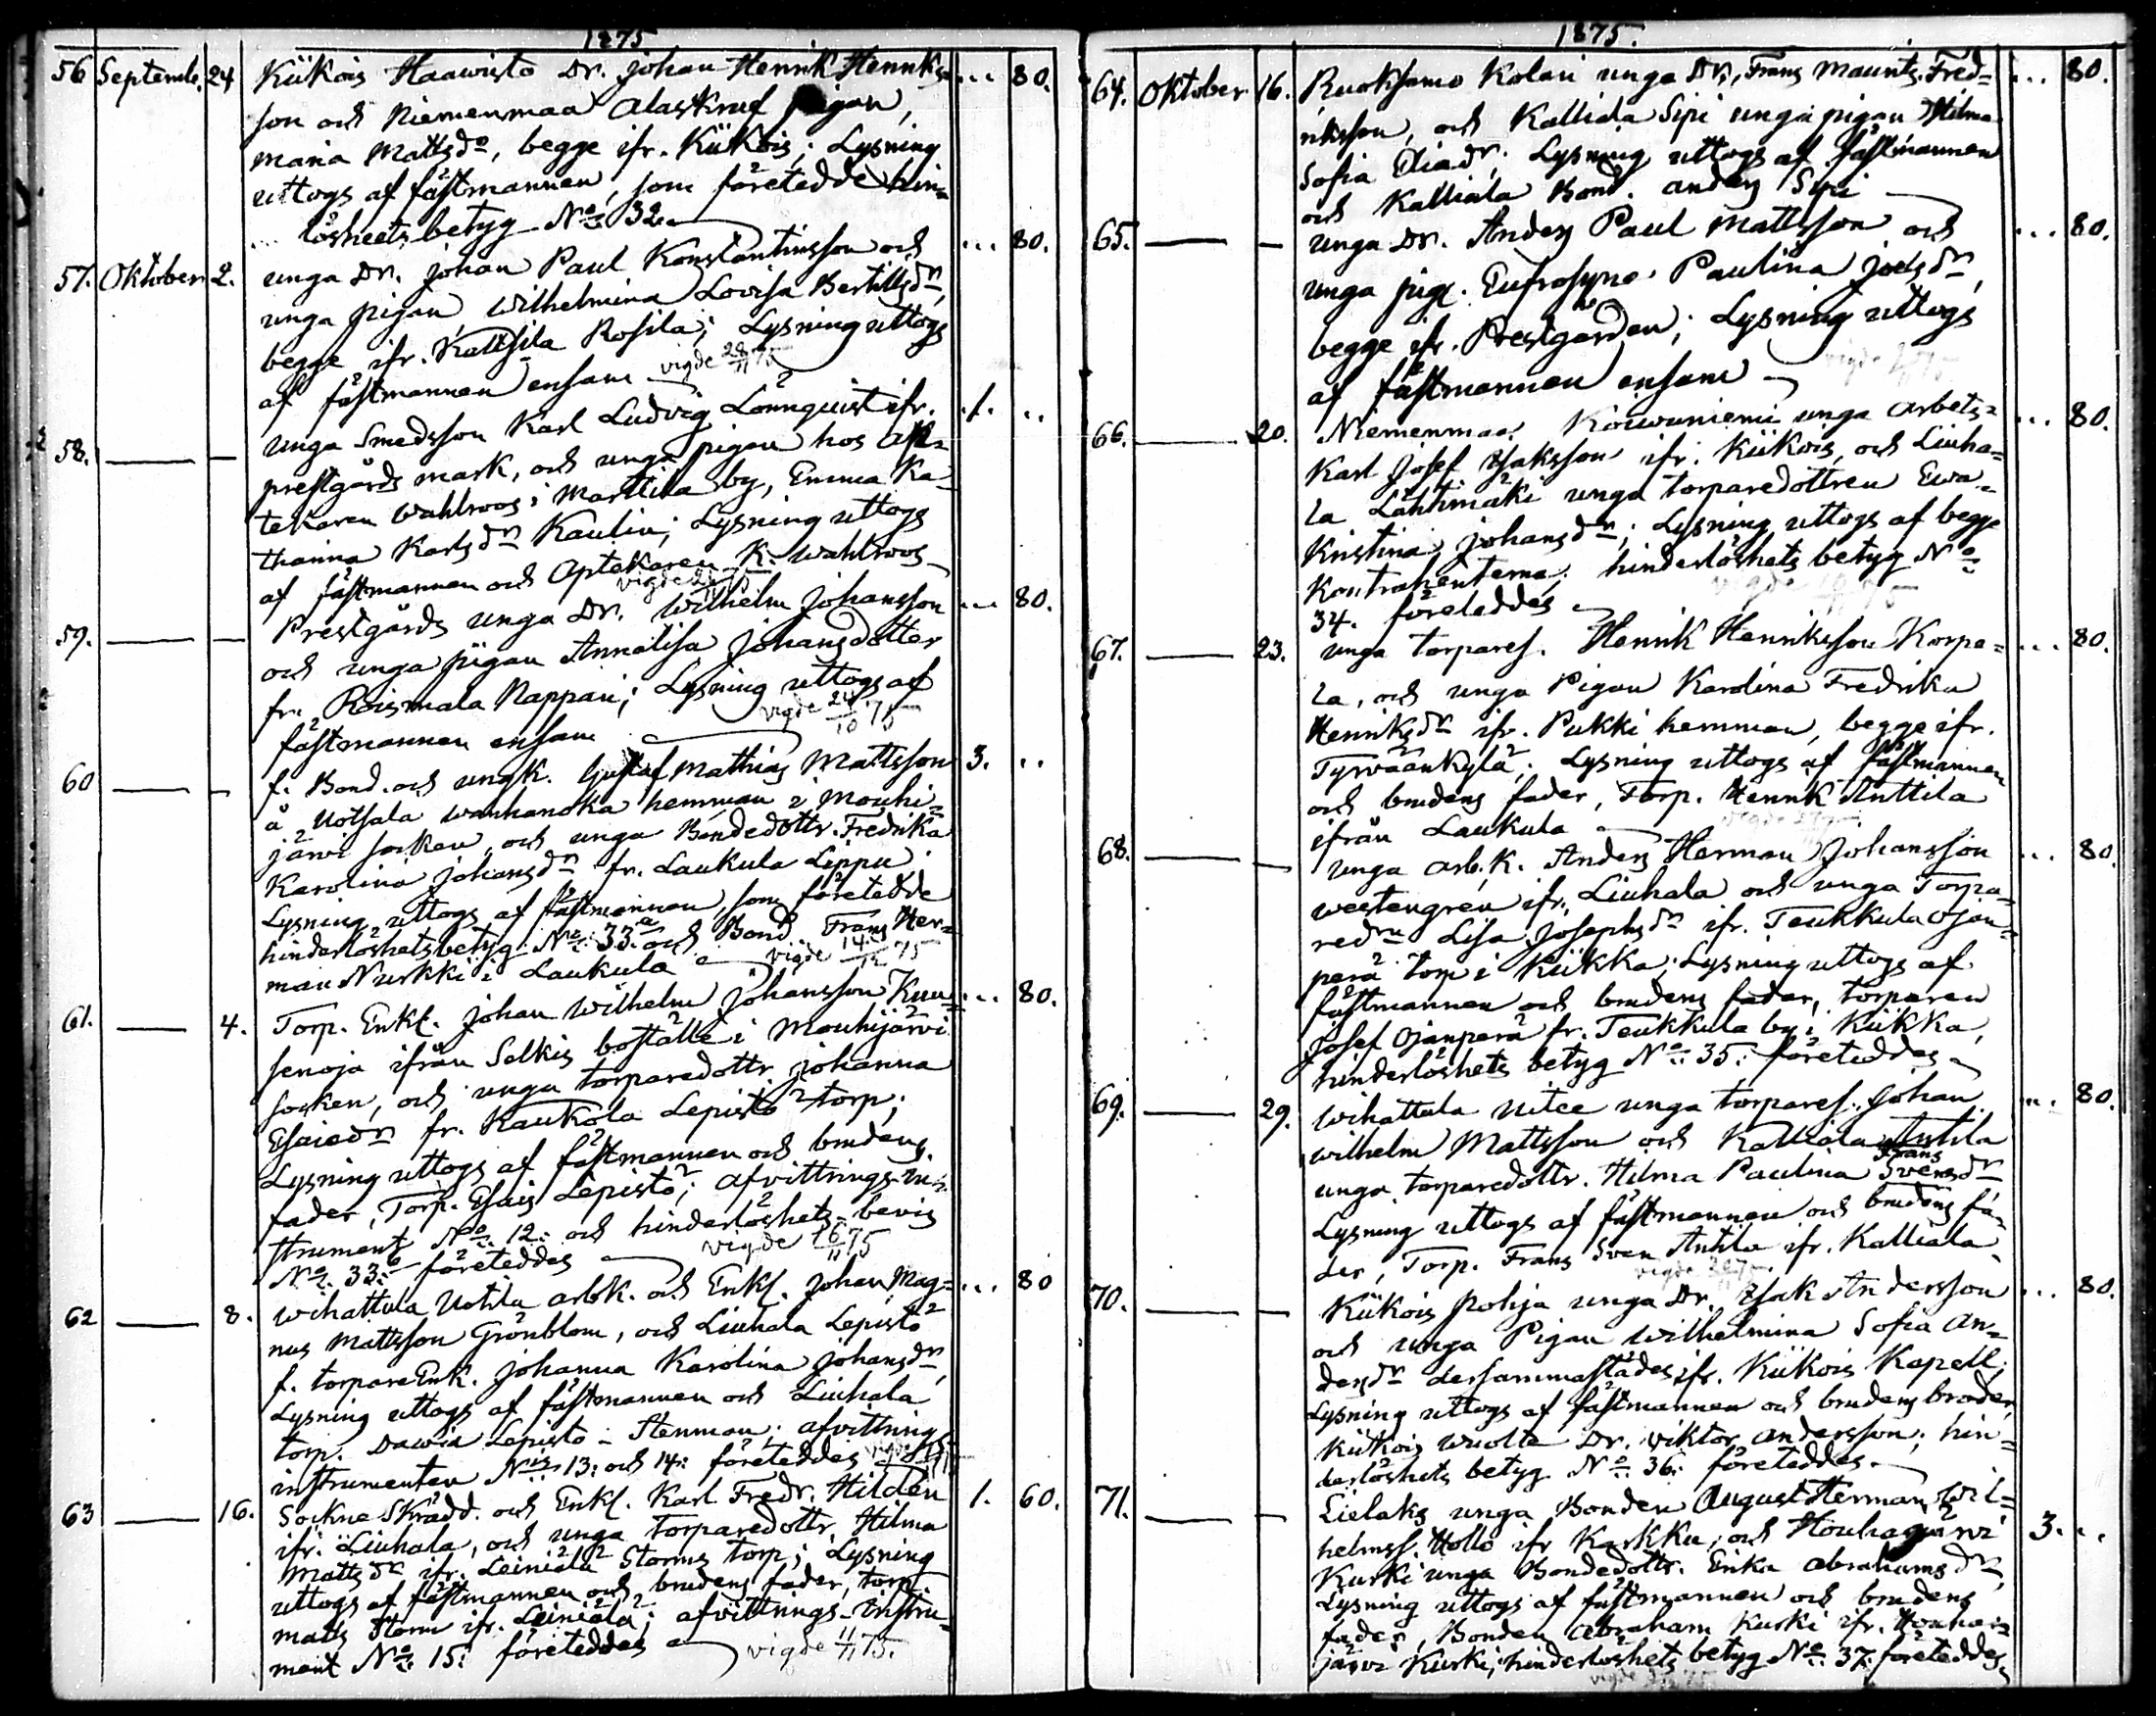 1875
56 Septemb. 24 Kiikois Haawisto Dr. Johan Henrik Henriks= ... 80.
son och Niemenmaa Alaskruf pigan,
Maria Mattsdr, begge ifr. Kiikois; Lysning
uttogs af fästmannen, som företedde hin=
löshets betyg No 32.
57. Oktober 2. unga Dr. Johan Paul Konstantinsson och ... 80.
unga pigan Wilhelmina Lovisa Bertilsdr,
begge ifr. Kaltsila Rosila; Lysning uttogs
af fästmannen ensam vigde 28/11 75
58. — — unga Smedsson Karl Ludvig Lönnquist ifr. 1. ..
prestgårds mark, och unga pigan hos Apo=
tekaren Wahlroos i Marttila by, Emma Ka=
tharina Karlsdr Kaulin; Lysning uttogs
af fästmannen och Aptekaren K. Wahlroos
vigde
59. — — Prestgårds unga Dr. Wilhelm Johansson ... 80.
och unga pigan Annalisa Johansdotter
fr. Roismala Nappari; Lysning uttogs af
fästmannen ensam vigde 24/10 75
60 — — f. Bond. och ungk. Gustaf Mathias Mattsson 3. ..
å Uotsala Wanhanoka hemman i Mouhi=
järvi socken, och unga Bondedottr. Fredrika
Karolina Johansdr fr. Laukula Lippu
Lysning uttogs af fästmannen, som företedde
hinderlöshetsbetyg No 33.a och Bond. Frans Her=
man Nurkki i Laukula vigde 14/12 75
61. — 4. Torp. Enkl. Johan Wilhelm Johansson Kuu= ... 80.
senoja ifrån Selkis boställe i Mouhijärvi
socken, och unga torparedottr Johanna
Esaiedr fr. Kaukola Lepistö torp;
Lysning uttogs af fästmannen och brudens
fader, Torp. Esais Lepistö; afvittrings-in=
strument No 12: och hinderlöshets-bevis
No 33.b företeddes vigde 16/11 75
62 — 8. Wihattula Uotila arbk. och Enkl. Johan Mag= ... 80
nus Mattsson Grönblom, och Liuhala Lepistö
f. torpare Enk. Johanna Karolina Johansdr,
Lysning uttogs af fästmannen och Liuhala
torp. Dawid Lepistö-Stenman; afvittrings
instrumenten Nis 13: och 14: företeddes
63 — 16. Sockne Skrädd. och Enkl. Karl Fredr. Hilden 1. 60.
ifr. Liuhala, och unga torparedottr. Hilma
Mattsdr ifr. Leiniälä Storms torp; Lysning
uttogs af fästmannen och brudens fader, torp.
Matts Storm ifr. Leiniälä; afvittrings-instru=
ment No 15: företeddes vigde 11/11 75.
1875.
64. Oktober 16. Ruoksamo Kolari unga Dr. Frans Maurits Fred= ... 80.
riksson, och Kalliala Sipi unga pigan Hilma
Sofia Eliadr; Lysning uttogs af fästmannen
och Kalliala Bond. Anders Sipi
65. — — unga Dr. Anders Paul Mattsson och ... 80.
unga pig. Eufrosyne Paulina Joelsdr,
begge ifr. Prestgården; Lysning uttogs
af fästmannen ensam
66. — 20. Niemenmaa Koiwuniemi unga arbets= ... 80.
Karl Josef Isaksson ifr. Kiikois, och Liuha=
la Lähtimäki unga torparedottren Ewa
Kristina Johansdr; Lysning uttogs af begge
Kontrahenterna; hinderlöshets betyg No
34. företeddes
67. — 23. unga torpares. Henrik Henriksson Korpe= ... 80.
la, och unga Pigan Karolina Fredrika
Henriksdr ifr. Pukki hemman, begge ifr.
Tyrväänkylä; Lysning uttogs af fästmannen
och brudens fader, Torp. Henrik Anttila
ifrån Laukula
68. — — unga arb.k. Anders Herman Johansson ... 80.
Westengren ifr. Liuhala och unga Torpa=
redr Lisa Josephsdr ifr. Teukkula Ojan=
perä torp i Kiikka; Lysning uttogs af
fästmannen och brudens fader, torparen
Josef Ojanperä fr. Teukkula by i Kiikka,
hinderlöshets betyg No 35: företeddes
69. — 29. Wihattula Uitee unga torpares. Johan ... 80.
Wilhelm Mattsson och Kalliala Antila
unga torparedottr. Hilma Paulina Frans Svensdr
Lysning uttogs af fästmannen och brudens fa=
der, Torp. Frans Sven Antila ifr. Kalliala
70. — — Kiikois Pohja unga Dr. Isak Andersson ... 80.
och unga Pigan Wilhelmina Sofia An=
dersdr dersammastädes ifr. Kiikois Kapell;
Lysning uttogs af fästmannen och brudens broder,
Kiikois Wuolte Dr. Viktor Andersson; hin=
derlöshets betyg No 36: företeddes
71. — — Lielaks unga Bonden August Herman Wil=
helmss. Hollo ifr Karkku; och Houhajärvi 3. ..
Kurki unga Bondedottr. Erika Abrahamsdr,
Lysning uttogs af fästmannen och brudens
fader, Bonden Abraham Kurki ifr. Houha=
järvi Kurki; hinderlöshets betyg No 37: företeddes